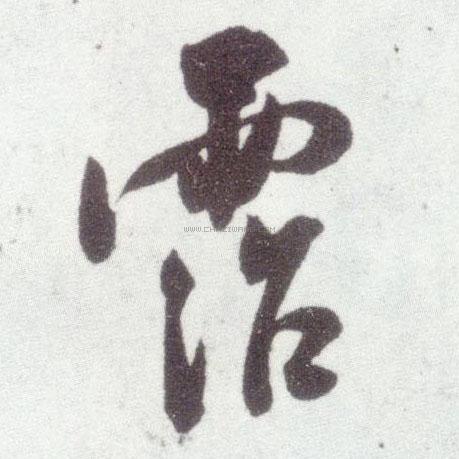 露
WWW.CHAZIWANG.COM